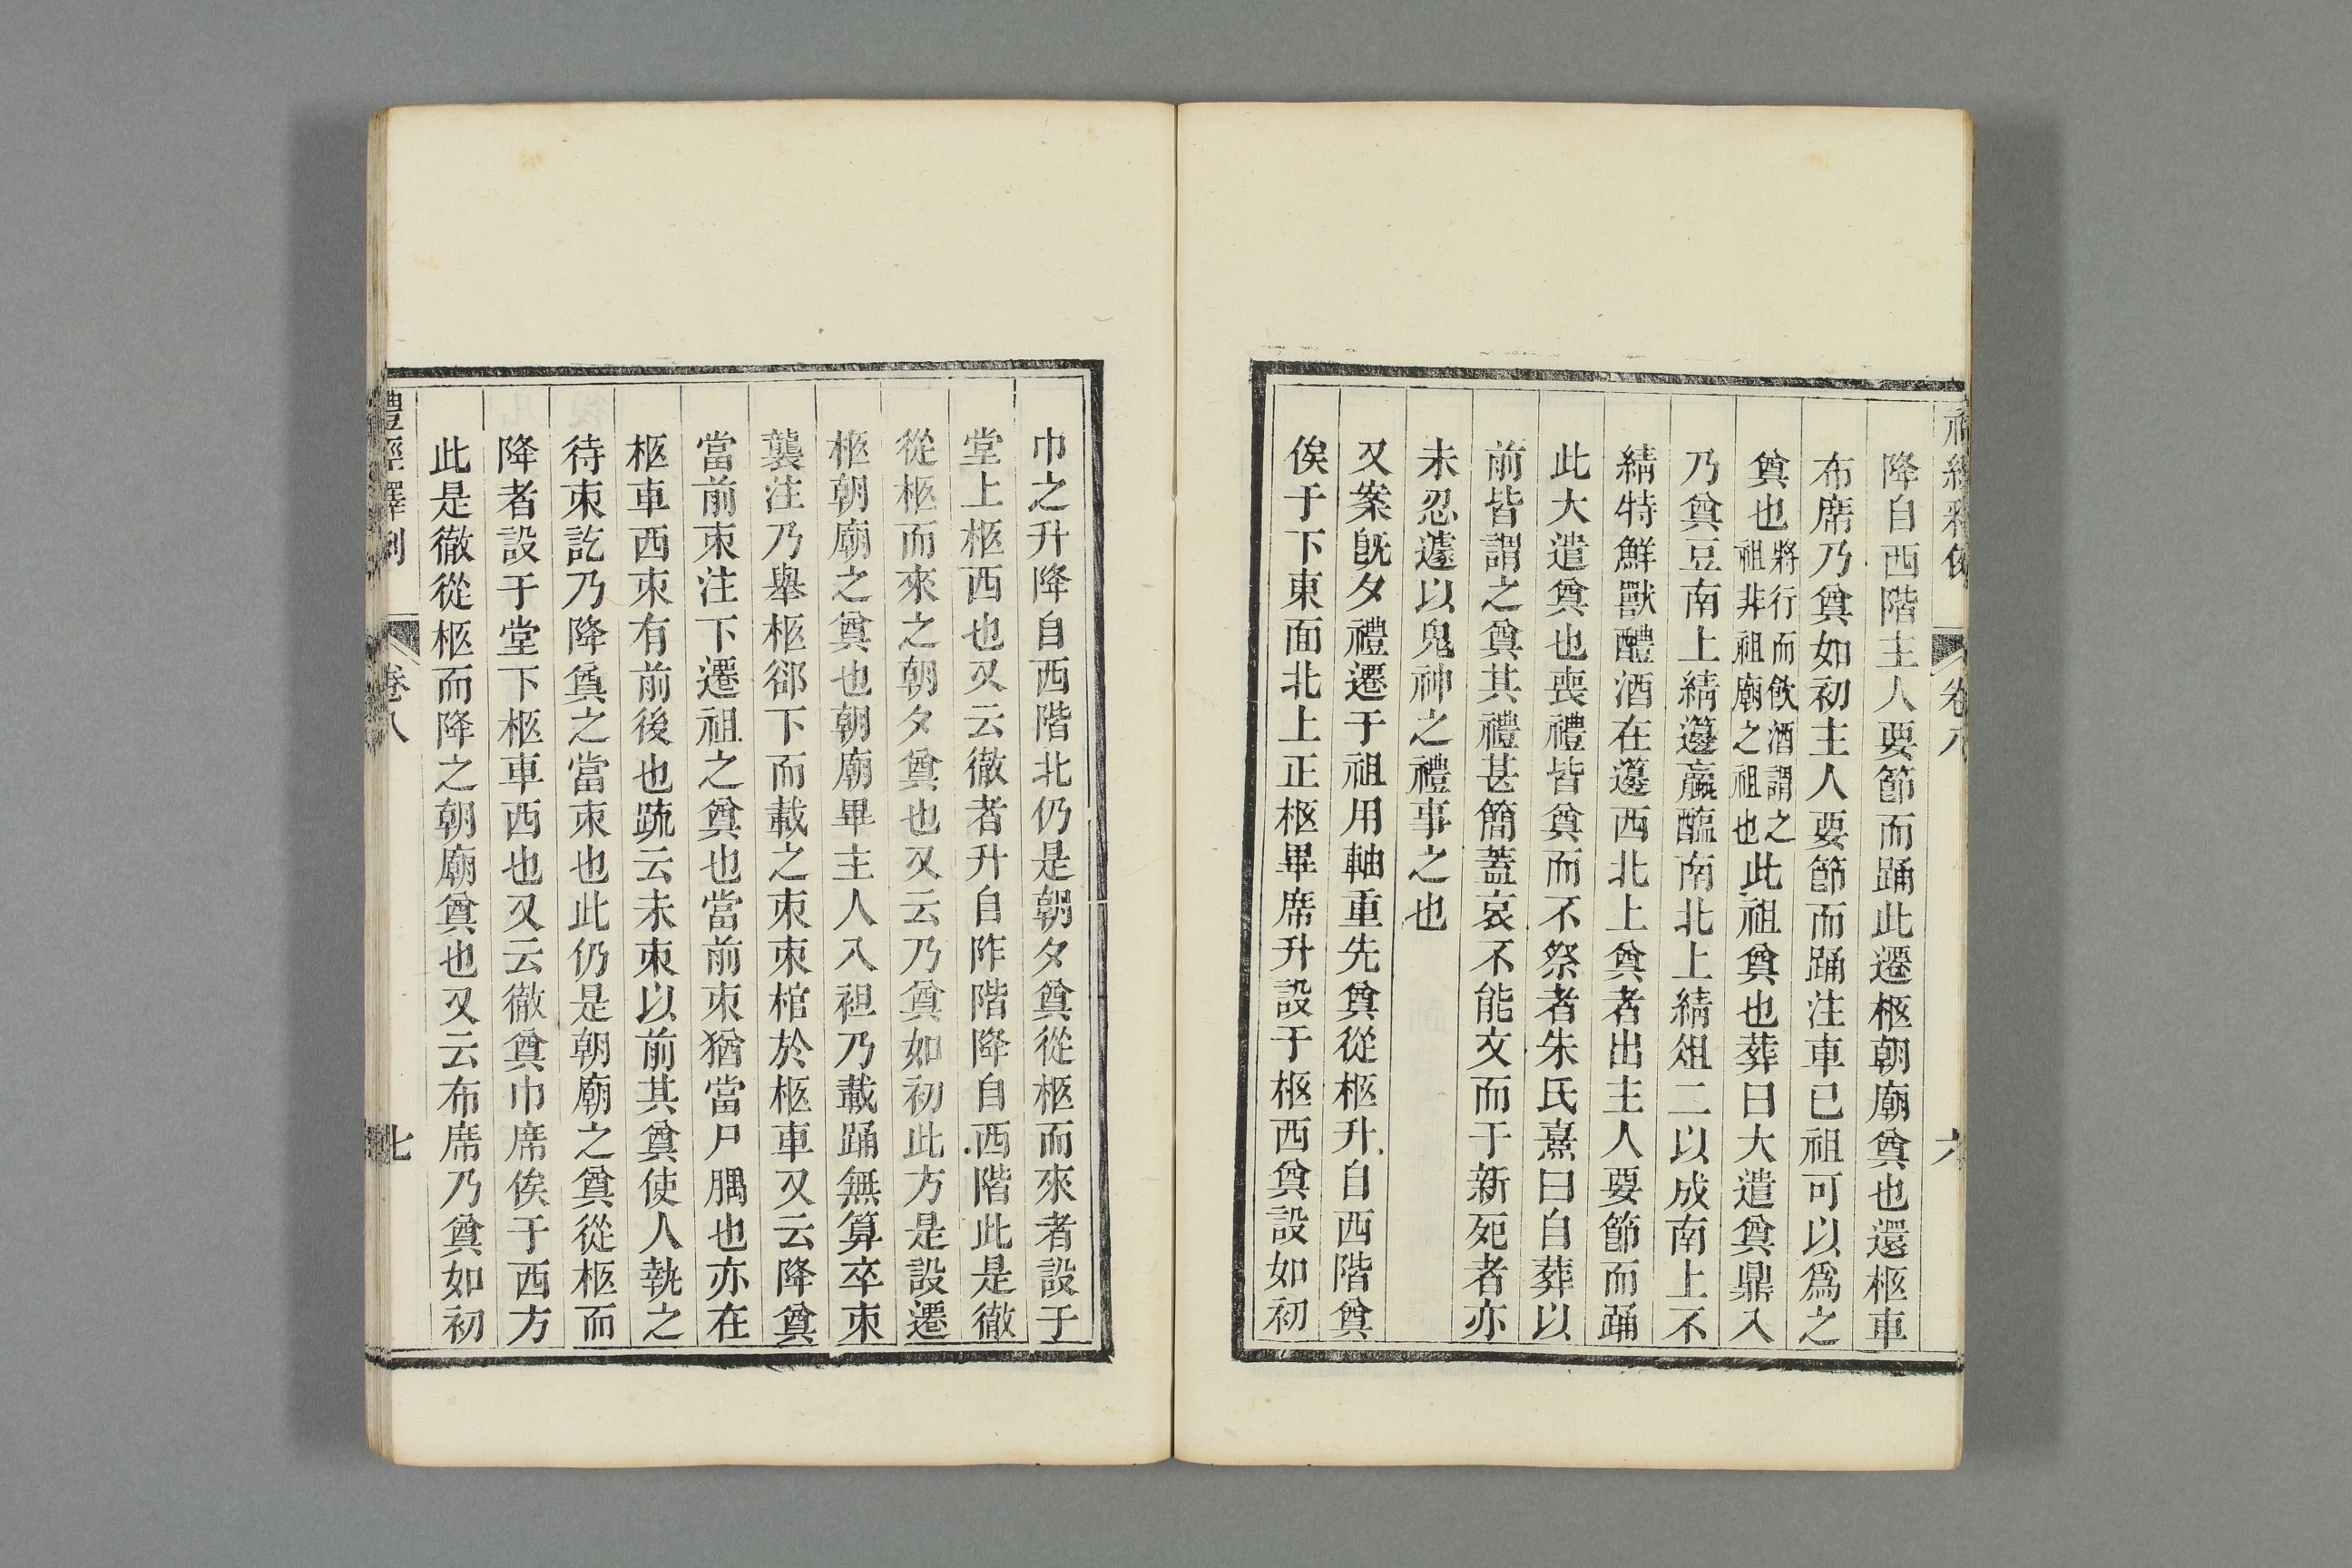 降自西階主人要節而踊此遷柩朝廟奠也還柩車
布席乃奠如初主人要節而踊注車已祖可以爲之
奠也將行而飲酒謂之祖非祖廟之祖也此祖奠也葬日大遣奠鼎入
乃奠豆南上綪籩蠃醢南北上綪俎二以成南上不
綪特鮮獸醴酒在籩西北上奠者出主人要節而踊
此大遣奠也喪禮皆奠而不祭者朱氏熹曰自葬以
前皆謂之奠其禮甚簡蓋哀不能文而于新死者亦
未忍遽以鬼神之禮事之也
又案旣夕禮遷于祖用軸重先奠從柩升自西階奠
俟于下東面北上正柩畢席升設于柩西奠設如初
巾之升降自西階北仍是朝夕奠從柩而來者設于
堂上柩西也又云徹者升自阼階降自西階此是徹
從柩而來之朝夕奠也又云乃奠如初此方是設遷
柩朝廟之奠也朝廟畢主人入袒乃載踊無算卒束
襲注乃舉柩郤下而載之束束棺於柩車又云降奠
當前束注下遷祖之奠也當前束猶當尸腢也亦在
柩車西束有前後也疏云未束以前其奠使人執之
待束訖乃降奠之當束也此仍是朝廟之奠從柩而
降者設于堂下柩車西也又云徹奠巾席俟于西方
此是徹從柩而降之朝廟奠也又云布席乃奠如初
禮經釋例 卷八 七